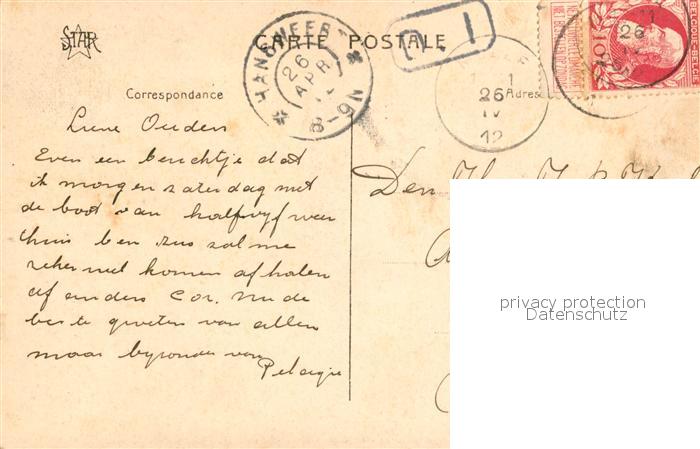 STAR
CARTE POSTALE
D.1
HANSWEERT
26
APR
8-9N
11
26
IV
12
BELGIQUE-BELGIE
26
Correspondance
Adres
Lieve Ouders
Even een berichtje dat
ik morgen zaterdag met
de boot van halfvijf weer
thuis ben dus zal me
zeker wel komen afhalen
of anders Cor. Nu de
beste groeten van allen
maar bijzonder van
Pelagie
Den
privacy protection
Datenschutz